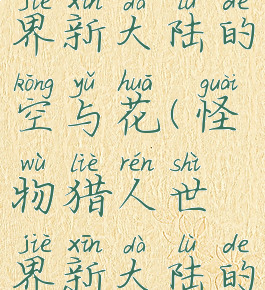 jiè xīn dà lù de
界新大陆的
kōng yǔ huā guài
空与花(怪
wù liè rén shì
物猎人世
jiè xīn dà lù de
界新大陆的